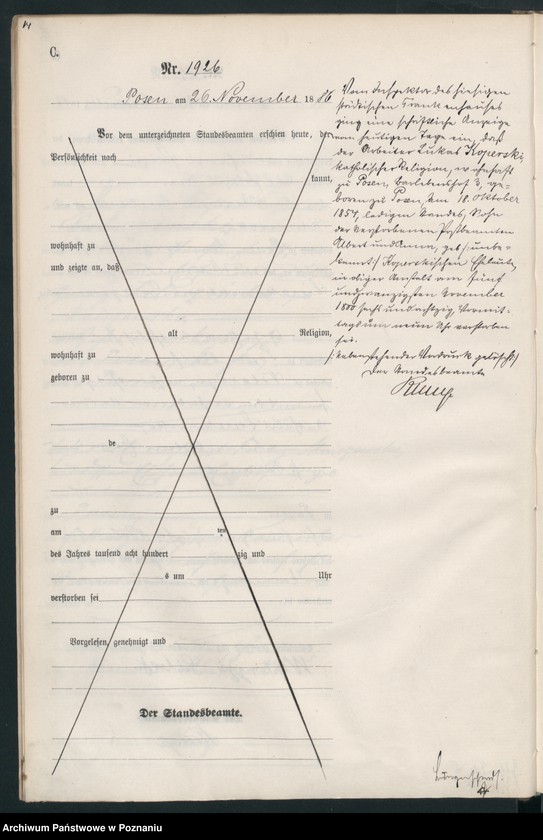 C.
Nr. 1926
Posen am 26 November 1886
Vor dem unterzeichneten Standesbeamten erschien heute, der
Persönlichkeit nach
kannt,
wohnhaft zu
und zeigte an, daß
alt Religion,
wohnhaft zu
geboren zu
de
zu
am ten
des Jahres tausend acht hundert zig und
s um Uhr
verstorben sei
Vorgelesen, genehmigt und
Der Standesbeamte.
Vom Inspektor des hiesigen
städtischen Krankenhauses
ging eine schriftliche Anzeige
vom heutigen Tage ein, daß
der Arbeiter Lukas Koperski,
katholischer Religion, wohnhaft
zu Posen, 3, ge-
boren zu Posen, am 18. Oktober
1854, ledigen Standes, Sohn
der verstorbenen Postbeamten
Albert und Anna, geb. /unbe-
kannt/ Koperskischen Eheleute,
in obiger Anstalt am fünf
undzwanzigsten November
1800 sechs und achtzig Vormit-
tags um neun Uhr verstorben
sei.
/: Nebenstehender Vordruck gelöscht :/
Der Standesbeamte
Archiwum Państwowe w Poznaniu